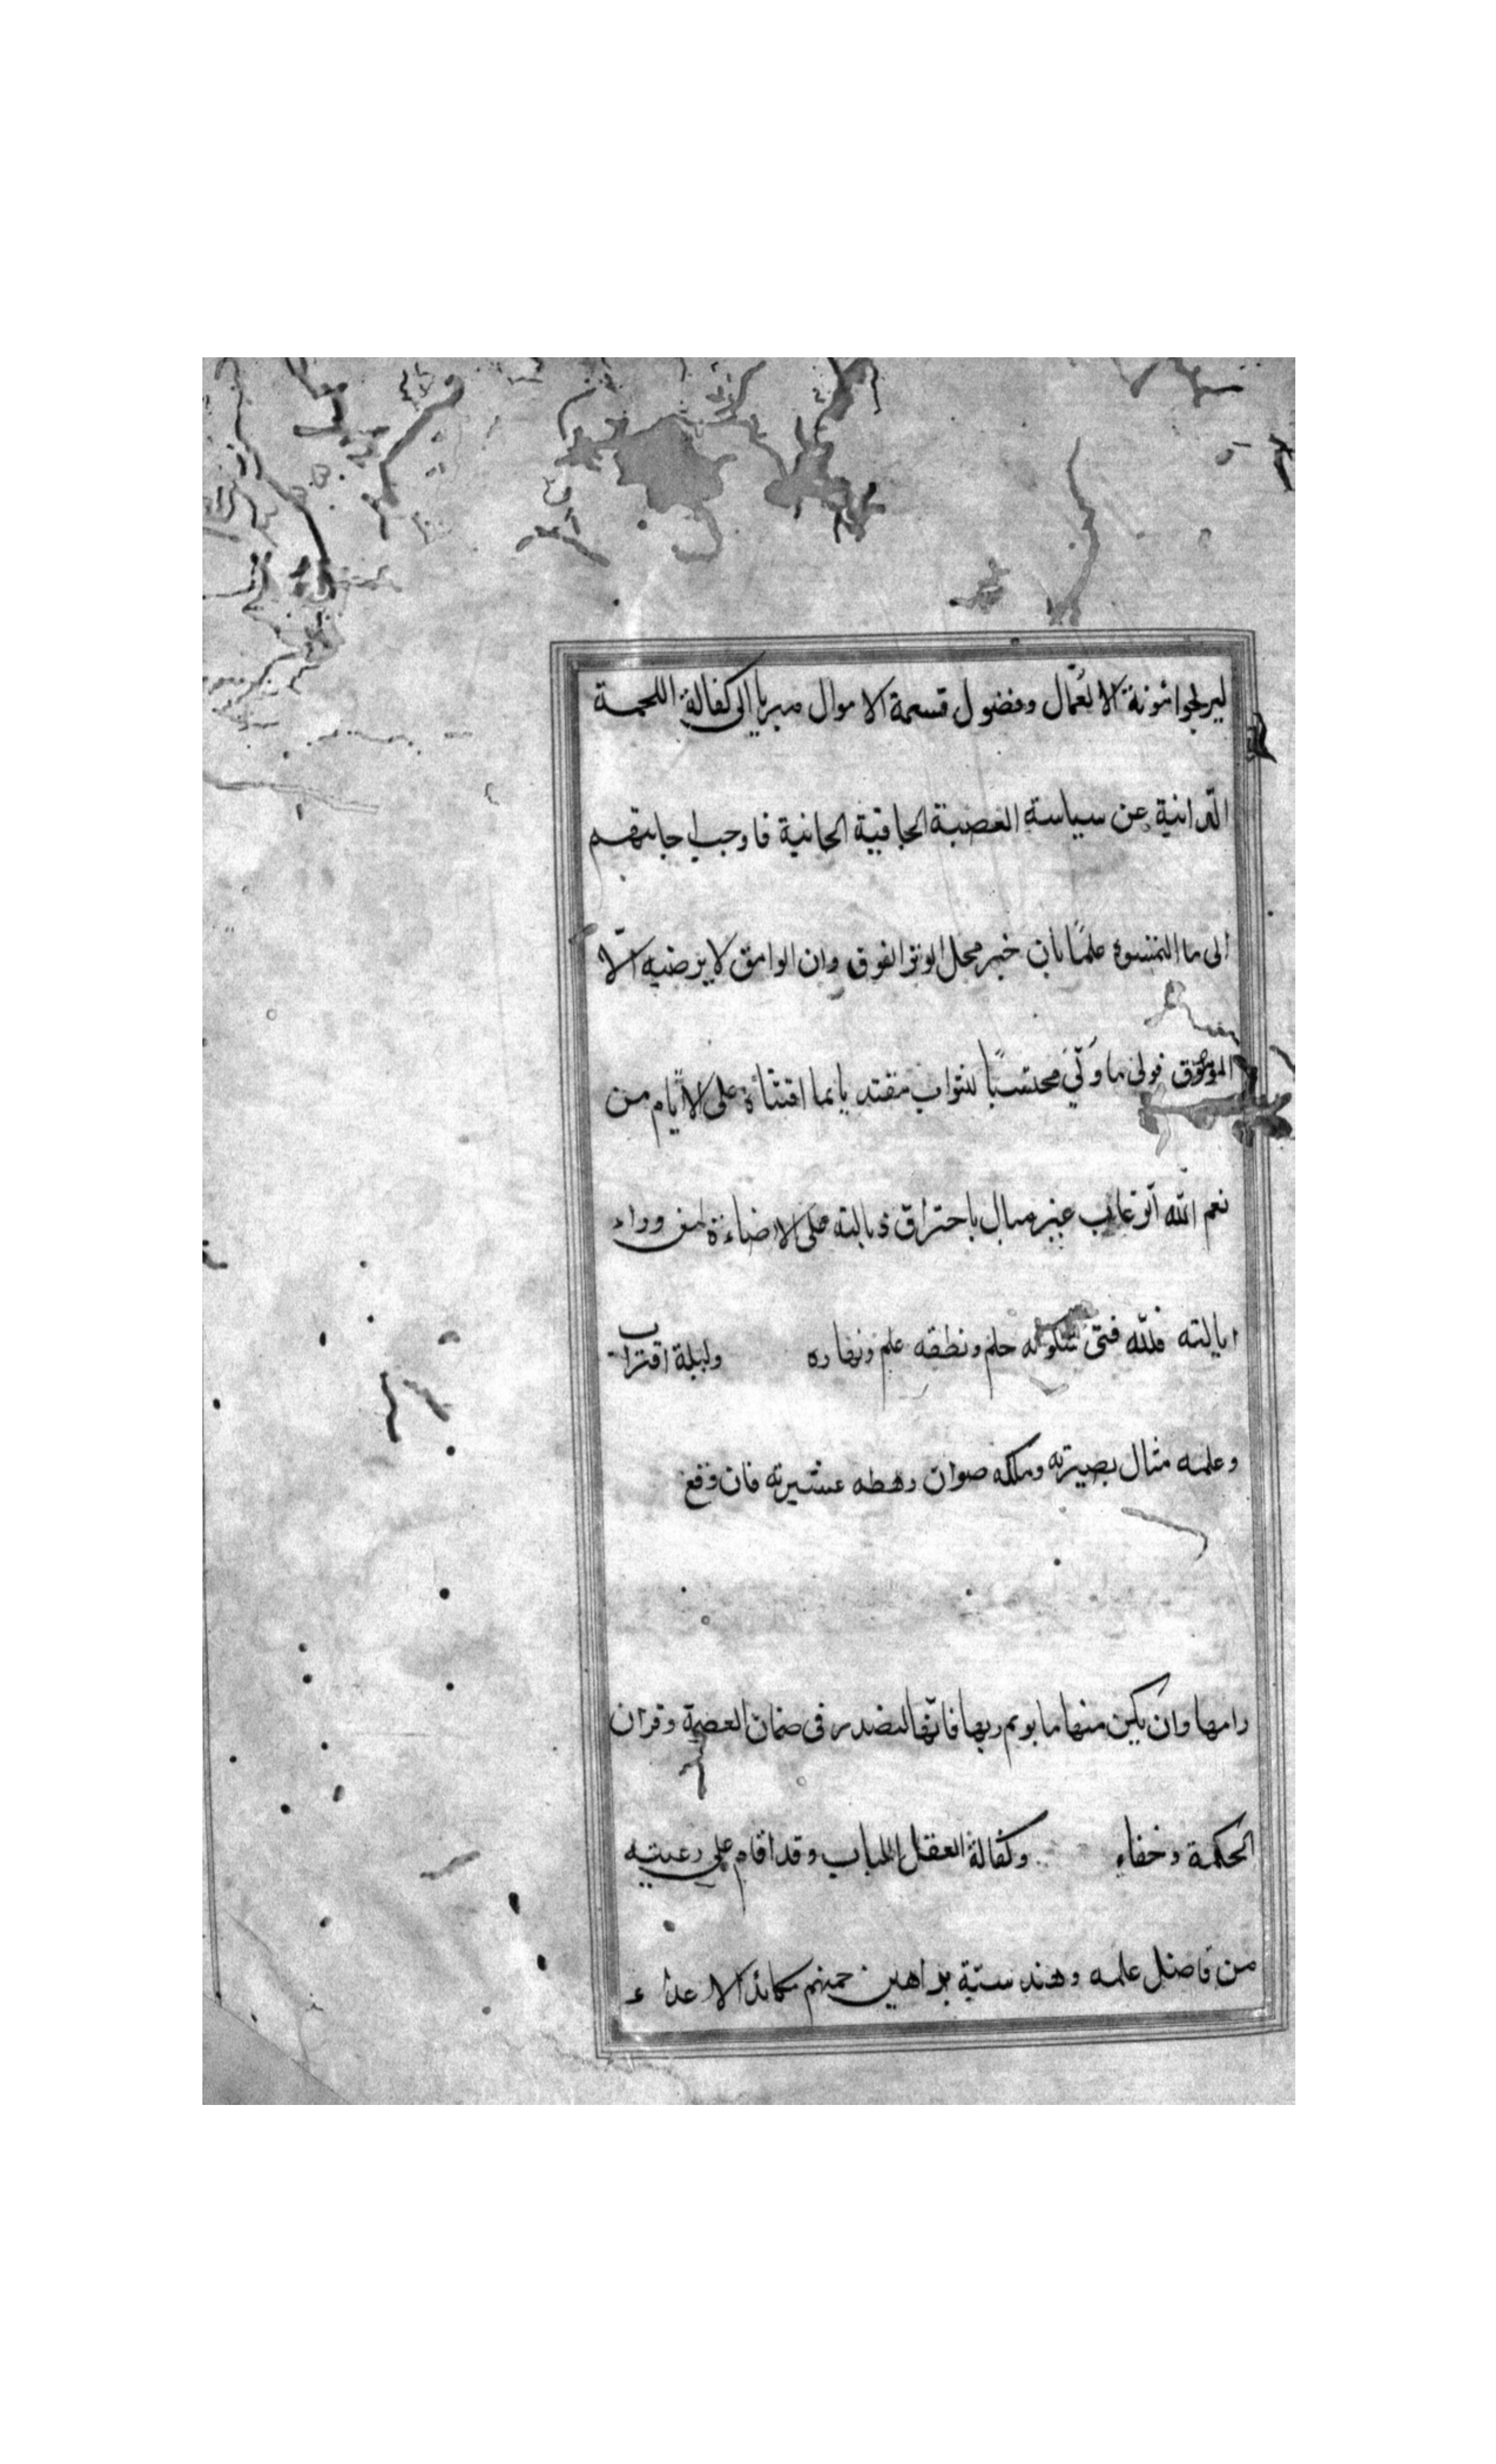 ليريحوا مؤنة الاعمال وفضول قسمة الاموال الى كفالة اللحمة
الدانية عن سياسة العصبة الجافية الجانية فاوجب اجابتهم
الى ما التمسوه علمًا بان خير محل الوتر الفوق وان الوامق لا يرضيه الّا
الموموق فولى ما ولّي محتسبًا لثواب على الايّام من
نعم الله غير مبال باحتراق ذبالته على الاضاءة لمن وراء
ايالته فللّه فتى حلم ونطقه علم ونهاره وليلة اقتراب
وعلمه مثال بصيرته وملكه صوان رهطه عشيرته فان
رامها وان يكن منها ما ربها فانّها فى ضمان العصمة وقران
الحكمة وخفاء وكفالة العقل اللباب وقد اقام على رعيته
من فاضل علمه وهندسته براهين مكائد الاعداء